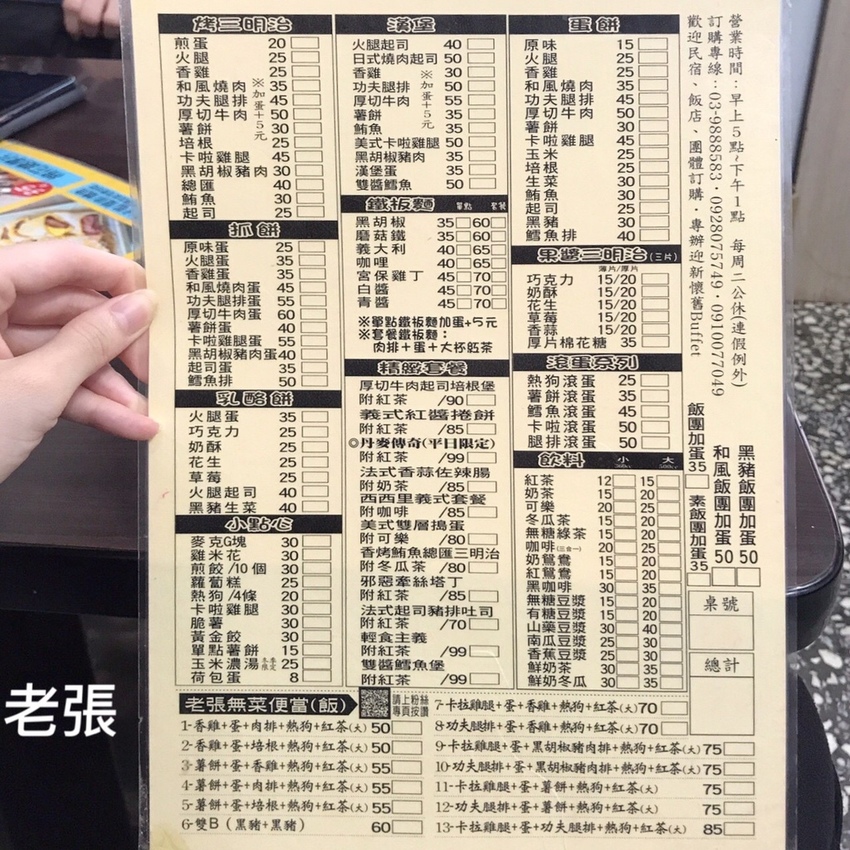 烤三明治
煎蛋 20
火腿 25
香雞 25
和風燒肉 35
功夫腿排 45
厚切牛肉 50
薯餅 30
培根 25
卡啦雞腿 45
黑胡椒豬肉 30
總匯 40
鮪魚 30
起司 25
※加蛋+5元
抓餅
原味蛋 25
火腿蛋 35
香雞蛋 35
和風燒肉蛋 45
功夫腿排蛋 55
厚切牛肉蛋 60
薯餅蛋 40
卡啦雞腿蛋 55
黑胡椒豬肉蛋 40
起司蛋 35
鱈魚排 50
乳酪餅
火腿蛋 35
巧克力 25
奶酥 25
花生 25
草莓 25
火腿起司 40
黑豬生菜 40
小點心
麥克G塊 30
雞米花 30
煎餃/10個 30
蘿蔔糕 25
熱狗/4條 20
卡啦雞腿 30
脆薯 30
黃金餃 30
單點薯餅 15
玉米濃湯 冬季限定 25
荷包蛋 8
漢堡
火腿起司 40
日式燒肉起司 50
香雞 30
功夫腿排 50
厚切牛肉 55
薯餅 35
鮪魚 35
美式卡啦雞腿 50
黑胡椒豬肉 35
漢堡蛋 25
雙醬鱈魚 50
※加蛋+5元
鐵板麵 單點 套餐
黑胡椒 35 60
磨菇鐵 35 60
義大利 40 65
咖哩 40 65
宮保雞丁 45 70
白醬 45 70
青醬 45 70
※單點鐵板麵加蛋+5元
※套餐鐵板麵:
肉排+蛋+大杯紅茶
精緻套餐
厚切牛肉起司培根堡
附紅茶 /90
義式紅醬捲餅
附紅茶 /85
◎丹麥傳奇(平日限定)
附紅茶 /99
法式香蒜佐辣腸
附奶茶 /85
西西里義式套餐
附咖啡 /85
美式雙層搗蛋
附可樂 /80
香烤鮪魚總匯三明治
附冬瓜茶 /80
邪惡牽絲塔丁
附紅茶 /85
法式起司豬排吐司
附紅茶 /70
輕食主義
附紅茶 /99
雙醬鱈魚堡
附紅茶 /99
蛋餅
原味 15
火腿 25
香雞 25
和風燒肉 35
功夫腿排 45
厚切牛肉 50
薯餅 30
卡啦雞腿 45
玉米 25
培根 25
生菜 30
鮪魚 30
起司 25
黑豬 30
鱈魚排 40
果醬三明治(三片)
薄片/厚片
巧克力 15/20
奶酥 15/20
花生 15/20
草莓 15/20
香蒜 15/20
厚片棉花糖 35
滾蛋系列
熱狗滾蛋 25
薯餅滾蛋 35
鱈魚滾蛋 45
卡啦滾蛋 50
腿排滾蛋 50
飲料 小 大
紅茶 12 15
奶茶 15 20
可樂 20 25
冬瓜茶 15 20
無糖綠茶 15 20
咖啡(三合一) 20 25
奶鴛鴦 15 20
紅鴛鴦 15 20
黑咖啡 30 35
無糖豆漿 15 20
有糖豆漿 15 20
山藥豆漿 30 40
南瓜豆漿 25 30
香蕉豆漿 25 30
鮮奶茶 30
鮮奶冬瓜 30
營業時間:早上5點~下午1點 每周二公休(連假例外)
訂購專線:03-9888583·0928075749·0910077049
歡迎民宿、飯店、團體訂購·專辦迎新懷舊Buffet
黑豬飯團加蛋 50
和風飯團加蛋 50
飯團加蛋 35
素飯團加蛋 35
桌號
總計
老張無菜便當(飯)
請上粉絲專頁按讚
1-香雞+蛋+肉排+熱狗+紅茶(大) 50
2-香雞+蛋+培根+熱狗+紅茶(大) 50
3-薯餅+蛋+香雞+熱狗+紅茶(大) 55
4-薯餅+蛋+肉排+熱狗+紅茶(大) 55
5-薯餅+蛋+培根+熱狗+紅茶(大) 55
6-雙B(黑豬+黑豬) 60
7-卡拉雞腿+蛋+香雞+熱狗+紅茶(大) 70
8-功夫腿排+蛋+香雞+熱狗+紅茶(大) 70
9-卡拉雞腿+蛋+黑胡椒豬肉排+熱狗+紅茶(大) 75
10-功夫腿排+蛋+黑胡椒豬肉排+熱狗+紅茶(大) 75
11-卡拉雞腿+蛋+薯餅+熱狗+紅茶(大) 75
12-功夫腿排+蛋+薯餅+熱狗+紅茶(大) 75
13-卡拉雞腿+蛋+功夫腿排+熱狗+紅茶(大) 85
老張